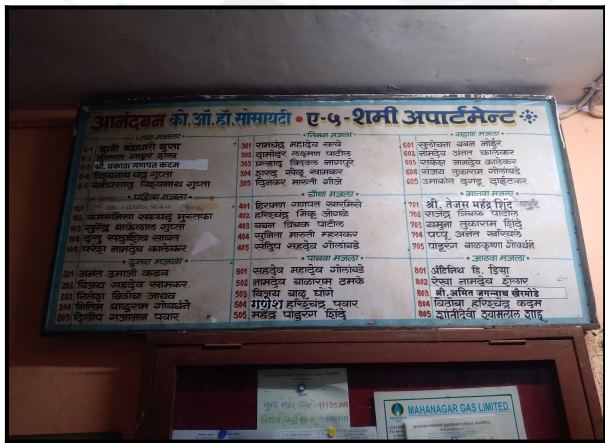 आनंदबन को.ऑ.हौ.सोसायटी • ए-५-शमी अपार्टमेन्ट
• तळ मजला •
G-1 मुन्नी बंशधारी गुप्ता
G-3 श्री. प्रकाश गणपत कदम
G-4 विश्वनाथ चंद्र गुप्ता
G-5 विश्वनाथ गुप्ता
• पहिला मजला •
102 कमरुनिसा सय्यद मुस्तफा
103 सुरेंद्र बाकेलाल गुप्ता
104 दत्तु सदाशिव सावंत
105 परेश नामदेव कालेकर
• दुसरा मजला •
201 अनंत उमाजी कदम
202 विजय सहदेव खामकर
203 निलेश विठोबा जाधव
204 नितिन बाळुराम गोवर्धने
205 दिलीप गजानन पवार
• तिसरा मजला •
301 रामचंद्र महादेव साळे
302 दामोदर लक्ष्मण पाटील
303 प्रल्हाद विठ्ठल नागपूरे
304 शरद खामकर
305 दिनकर मारुती
• चौथा मजला •
401 हिरामण गणपत खारमिसे
402 हरिश्चंद्र भिकू जोगळे
403 बबन त्रिंबक पाटील
404 सुनिता मारुती म्हसकर
405 संदिप सहदेव गोलांबडे
• पाचवा मजला •
501 सहदेव महादेव गोलांबडे
502 नामदेव बाळाराम ठमके
503 विजय बाळू घोणे
504 गणेश हरिश्चंद्र पवार
505 महेंद्र पांडुरंग शिंदे
• सहावा मजला •
601 सुलोचना बबन भोईर
602 नामदेव अनंत कालेकर
603 राकेश नामदेव कालेकर
604 संजय तुकाराम गोलांबडे
605 उमाकांत दाईटकर
• सातवा मजला •
701 श्री. तेजस महेंद्र शिंदे
702 राजेंद्र त्रिंबक पाटील
703 यमुना तुकाराम शिंदे
704 पप्पू अनंत
705 पांडुरंग बाळकृष्ण गोवर्धने
• आठवा मजला •
801 अँटिनिथ डि. डिसा
802 रेखा नामदेव शेलार
803 श्री. अमित जगन्नाथ खैरमोडे
804 विठोबा हरिश्चंद्र कदम
805 शांतीदेवी श्यामलाल शाहू
MAHANAGAR GAS LIMITED